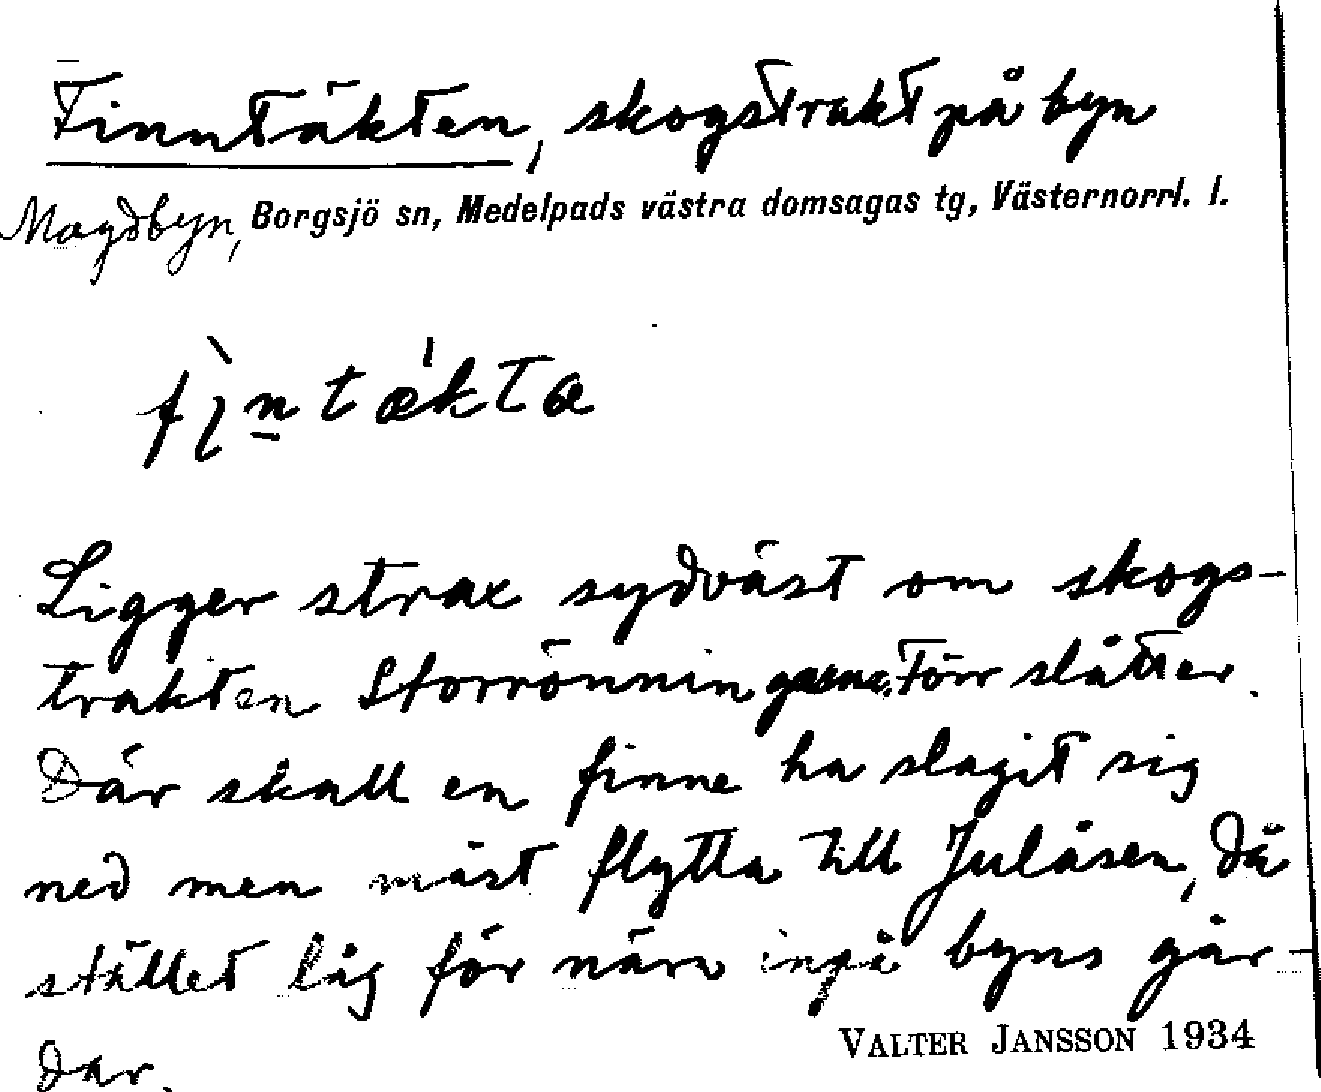 Finntäkten, skogstrakt på byn
Magdbyn, Borgsjö sn, Medelpads västra domsagas tg, Västernorrl. l.
fìntǽkta
Ligger strax sydväst om skogs-
trakten Storrönningarna. Förr slåtter.
Där skall en finne ha slagit sig
ned men måst flytta till Julåsen, då
stället låg för nära inpå byns går-
dar.
VALTER JANSSON 1934